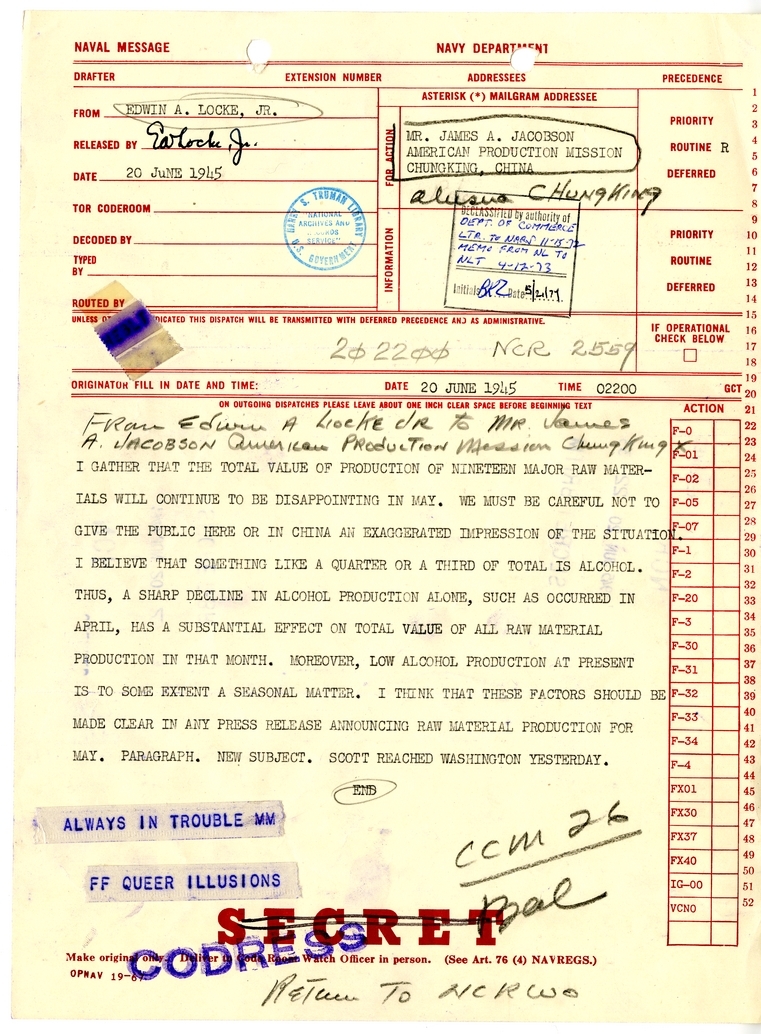 NAVAL MESSAGE NAVY DEPARTMENT
DRAFTER EXTENSION NUMBER ADDRESSEES PRECEDENCE
FROM EDWIN A. LOCKE, JR.
RELEASED BY EALocke, Jr.
DATE 20 JUNE 1945
TOR CODEROOM
DECODED BY
TYPED
BY
ROUTED BY
ASTERISK (*) MAILGRAM ADDRESSEE
FOR ACTION
MR. JAMES A. JACOBSON
AMERICAN PRODUCTION MISSION
CHUNGKING, CHINA
alusna CHUNGKING
INFORMATION
PRIORITY
ROUTINE R
DEFERRED
PRIORITY
ROUTINE
DEFERRED
HARRY S. TRUMAN LIBRARY
"NATIONAL
ARCHIVES AND
RECORDS
SERVICE"
U.S. GOVERNMENT
DECLASSIFIED by authority of
DEPT. OF COMMERCE
LTR. TO NARS 11-15-72
MEMO FROM NL TO
NLT 4-12-73
Initials Date
UNLESS INDICATED THIS DISPATCH WILL BE TRANSMITTED WITH DEFERRED PRECEDENCE AND AS ADMINISTRATIVE.
IF OPERATIONAL
CHECK BELOW
202200 NCR 2559
ORIGINATOR FILL IN DATE AND TIME: DATE 20 JUNE 1945 TIME 02200 GCT
ON OUTGOING DISPATCHES PLEASE LEAVE ABOUT ONE INCH CLEAR SPACE BEFORE BEGINNING TEXT
From Edwin A Locke JR to MR. James
A. JACOBSON American PRODUCTION Mission ChungKing X
I GATHER THAT THE TOTAL VALUE OF PRODUCTION OF NINETEEN MAJOR RAW MATER-
IALS WILL CONTINUE TO BE DISAPPOINTING IN MAY. WE MUST BE CAREFUL NOT TO
GIVE THE PUBLIC HERE OR IN CHINA AN EXAGGERATED IMPRESSION OF THE SITUATION.
I BELIEVE THAT SOMETHING LIKE A QUARTER OR A THIRD OF TOTAL IS ALCOHOL.
THUS, A SHARP DECLINE IN ALCOHOL PRODUCTION ALONE, SUCH AS OCCURRED IN
APRIL, HAS A SUBSTANTIAL EFFECT ON TOTAL VALUE OF ALL RAW MATERIAL
PRODUCTION IN THAT MONTH. MOREOVER, LOW ALCOHOL PRODUCTION AT PRESENT
IS TO SOME EXTENT A SEASONAL MATTER. I THINK THAT THESE FACTORS SHOULD BE
MADE CLEAR IN ANY PRESS RELEASE ANNOUNCING RAW MATERIAL PRODUCTION FOR
MAY. PARAGRAPH. NEW SUBJECT. SCOTT REACHED WASHINGTON YESTERDAY.
END
ACTION
F-0
F-01
F-02
F-05
F-07
F-1
F-2
F-20
F-3
F-30
F-31
F-32
F-33
F-34
F-4
FX01
FX30
FX37
FX40
IG-00
VCNO
1
2
3
4
5
6
7
8
9
10
11
12
13
14
15
16
17
18
19
20
21
22
23
24
25
26
27
28
29
30
31
32
33
34
35
36
37
38
39
40
41
42
43
44
45
46
47
48
49
50
51
52
ALWAYS IN TROUBLE MM
FF QUEER ILLUSIONS
CCM 26
SECRET
CODRESS
Make original only. Deliver to Code Room Watch Officer in person. (See Art. 76 (4) NAVREGS.)
OPNAV 19-67
Return To NCRWO